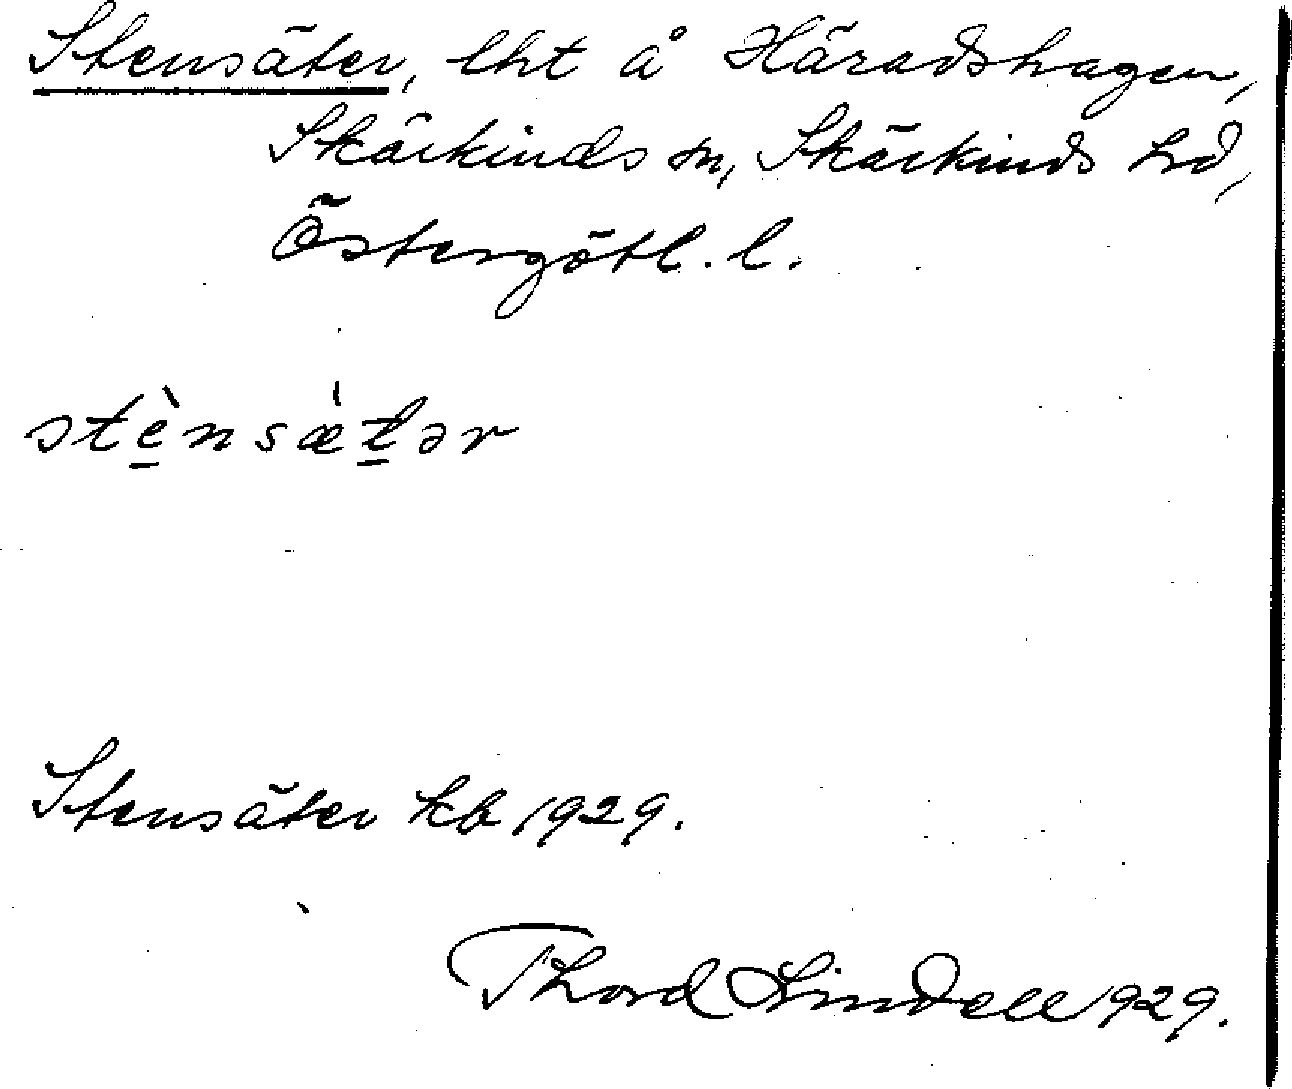 Stensäter, lht å Häradshagen,
Skärkinds sn, Skärkinds hd,
Östergötl. l.
stè̱nsæ̀ṯər
Stensäter kb 1929.
Thord Lindell 1929.